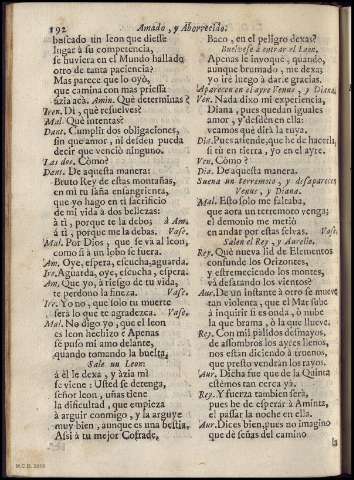 192 Amado, y Aborrecido.
buscado un leon que diesse
lugar à su competencia,
se huviera en el Mundo hallado
otro de tanta paciencia?
Mas parece que lo oyò,
que camina con mas priessa
àzia acà. Amin. Què determinas?
Iren. Di, què resuelves?
Mal. Què intentas?
Dant. Cumplir dos obligaciones,
sin que amor, ni desden pueda
decir que venciò ninguno.
Las dos. Còmo?
Dant. De aquesta manera:
Bruto Rey de estas montañas,
en mi tu saña ensangrienta,
que yo hago en ti sacrificio
de mi vida à dos bellezas:
à ti, porque te la debo; à Am.
à ti, porque me la debas. Vase.
Mal. Por Dios, que se và al leon,
como si à un lobo se fuera.
Am. Oye, espera, escucha, aguarda.
Ir. Aguarda, oye, escucha, espera.
Am. Que yo, à riesgo de tu vida,
te perdono la fineza. Vase.
Ir. Y yo no, que solo tu muerte
serà lo que te agradezca. Vase.
Mal. No digo yo, que el leon
es leon hechizo? Apenas
se puso mi amo delante,
quando tomando la buelta,
Sale un Leon.
à èl le dexa, y àzia mì
se viene: Usted se detenga,
señor leon, uñas tiene
la dificultad, que empieza
à arguir conmigo, y la arguye
muy bien, aunque es una bestia.
Assi à tu mejor Cofrade,
Baco, en el peligro dexas?
Buelvese à entrar el Leon.
Apenas le invoquè, quando,
aunque brumado, me dexa;
yo irè luego à darle gracias.
Aparecen en el ayre Venus, y Diana.
Ven. Nada dixo mi experiencia,
Diana, pues quedan iguales
amor, y desdèn en ella:
veamos què dirà la tuya.
Dia. Pues atiende, que he de hacerla,
si tu en tierra, yo en el ayre.
Ven. Còmo?
Dia. De aquesta manera.
Suena un terremoto, y desaparecen
Venus, y Diana.
Mal. Esto solo me faltaba,
que aora un terremoto venga;
el demonio me metiò
en andar por estas selvas. Vase.
Salen el Rey, y Aurelio.
Rey. Què nueva lid de Elementos
confunde los Orizontes,
y estremeciendo los montes,
và desatando los vientos?
Aur. De un instante à otro se mueve
tan violenta, que el Mar sube
à inquirir si es onda, ò nube
la que brama, ò la que llueve.
Rey. Con mil pàlidos desmayos,
de assombros los ayres llenos,
nos estàn diciendo à truenos,
que presto vendràn los rayos.
Aur. Dicha fue que de la Quinta
estèmos tan cerca yà.
Rey. Y fuerza tambien serà,
pues he de esperar à Aminta,
el passar la noche en ella.
Aur. Dices bien, pues no imagino
que dè señas del camino